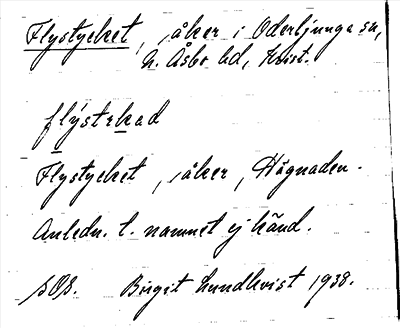 Flystycket, åker i Oderljunga sn,
N. Åsbo hd, Krist.
flýstękad
Flystycket, åker, Hägnaden.
Anledn. t. namnet ej känd.
Birgit Lundkvist 1938.